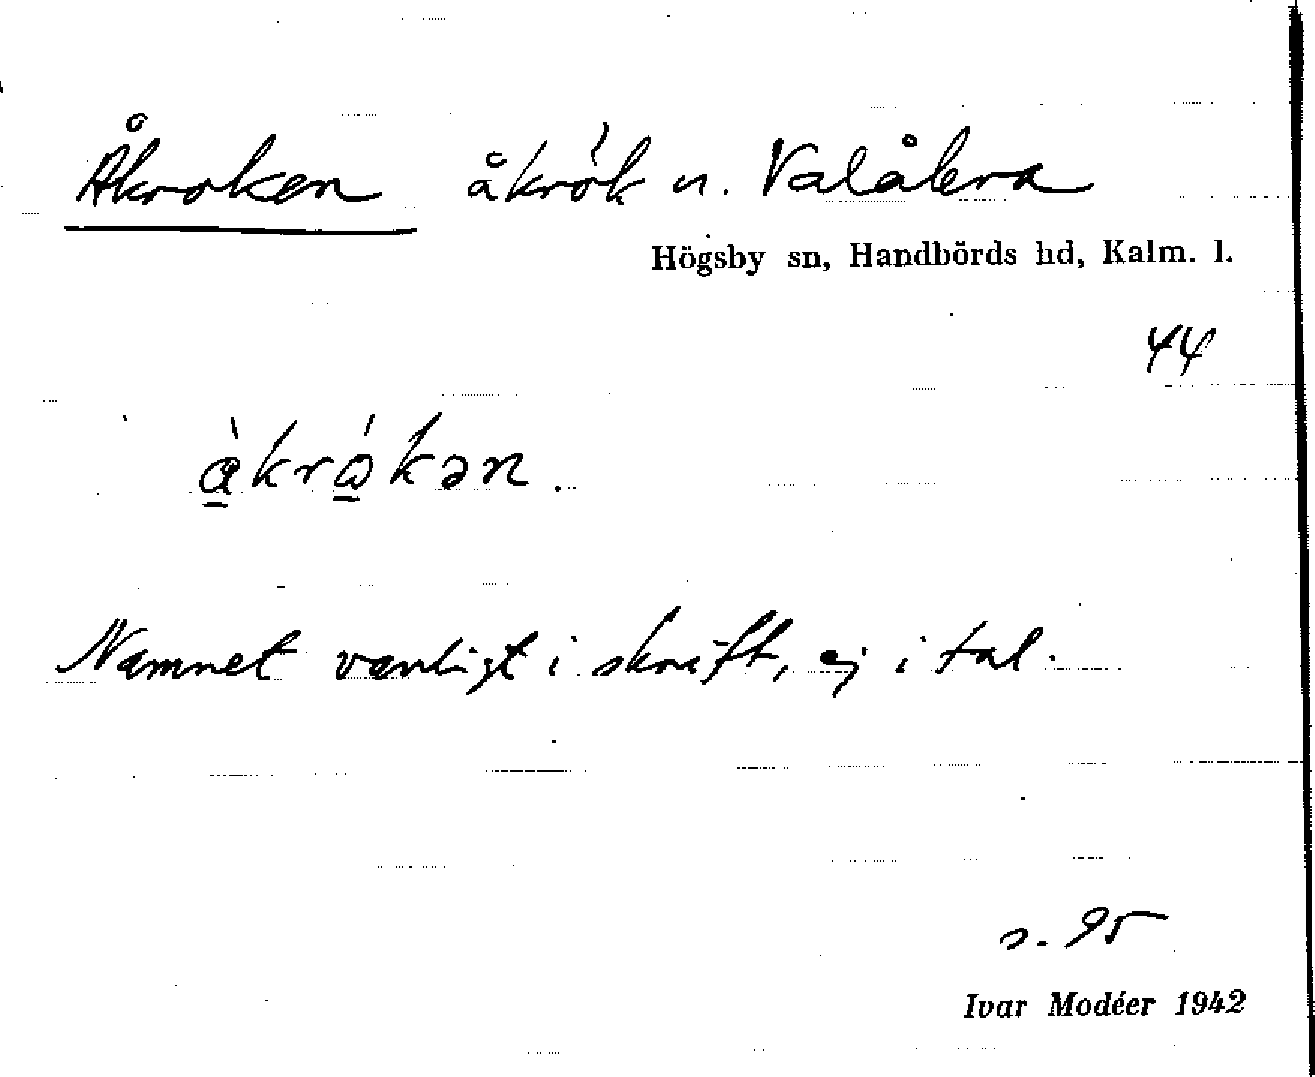 Åkroken åkrók n. Valåkra
Högsby sn, Handbörds hd, Kalm. l.
44
a̠̍kra̠̍kən.
Namnet vanligt i skrift, ej i tal.
s. 95
Ivar Modéer 1942